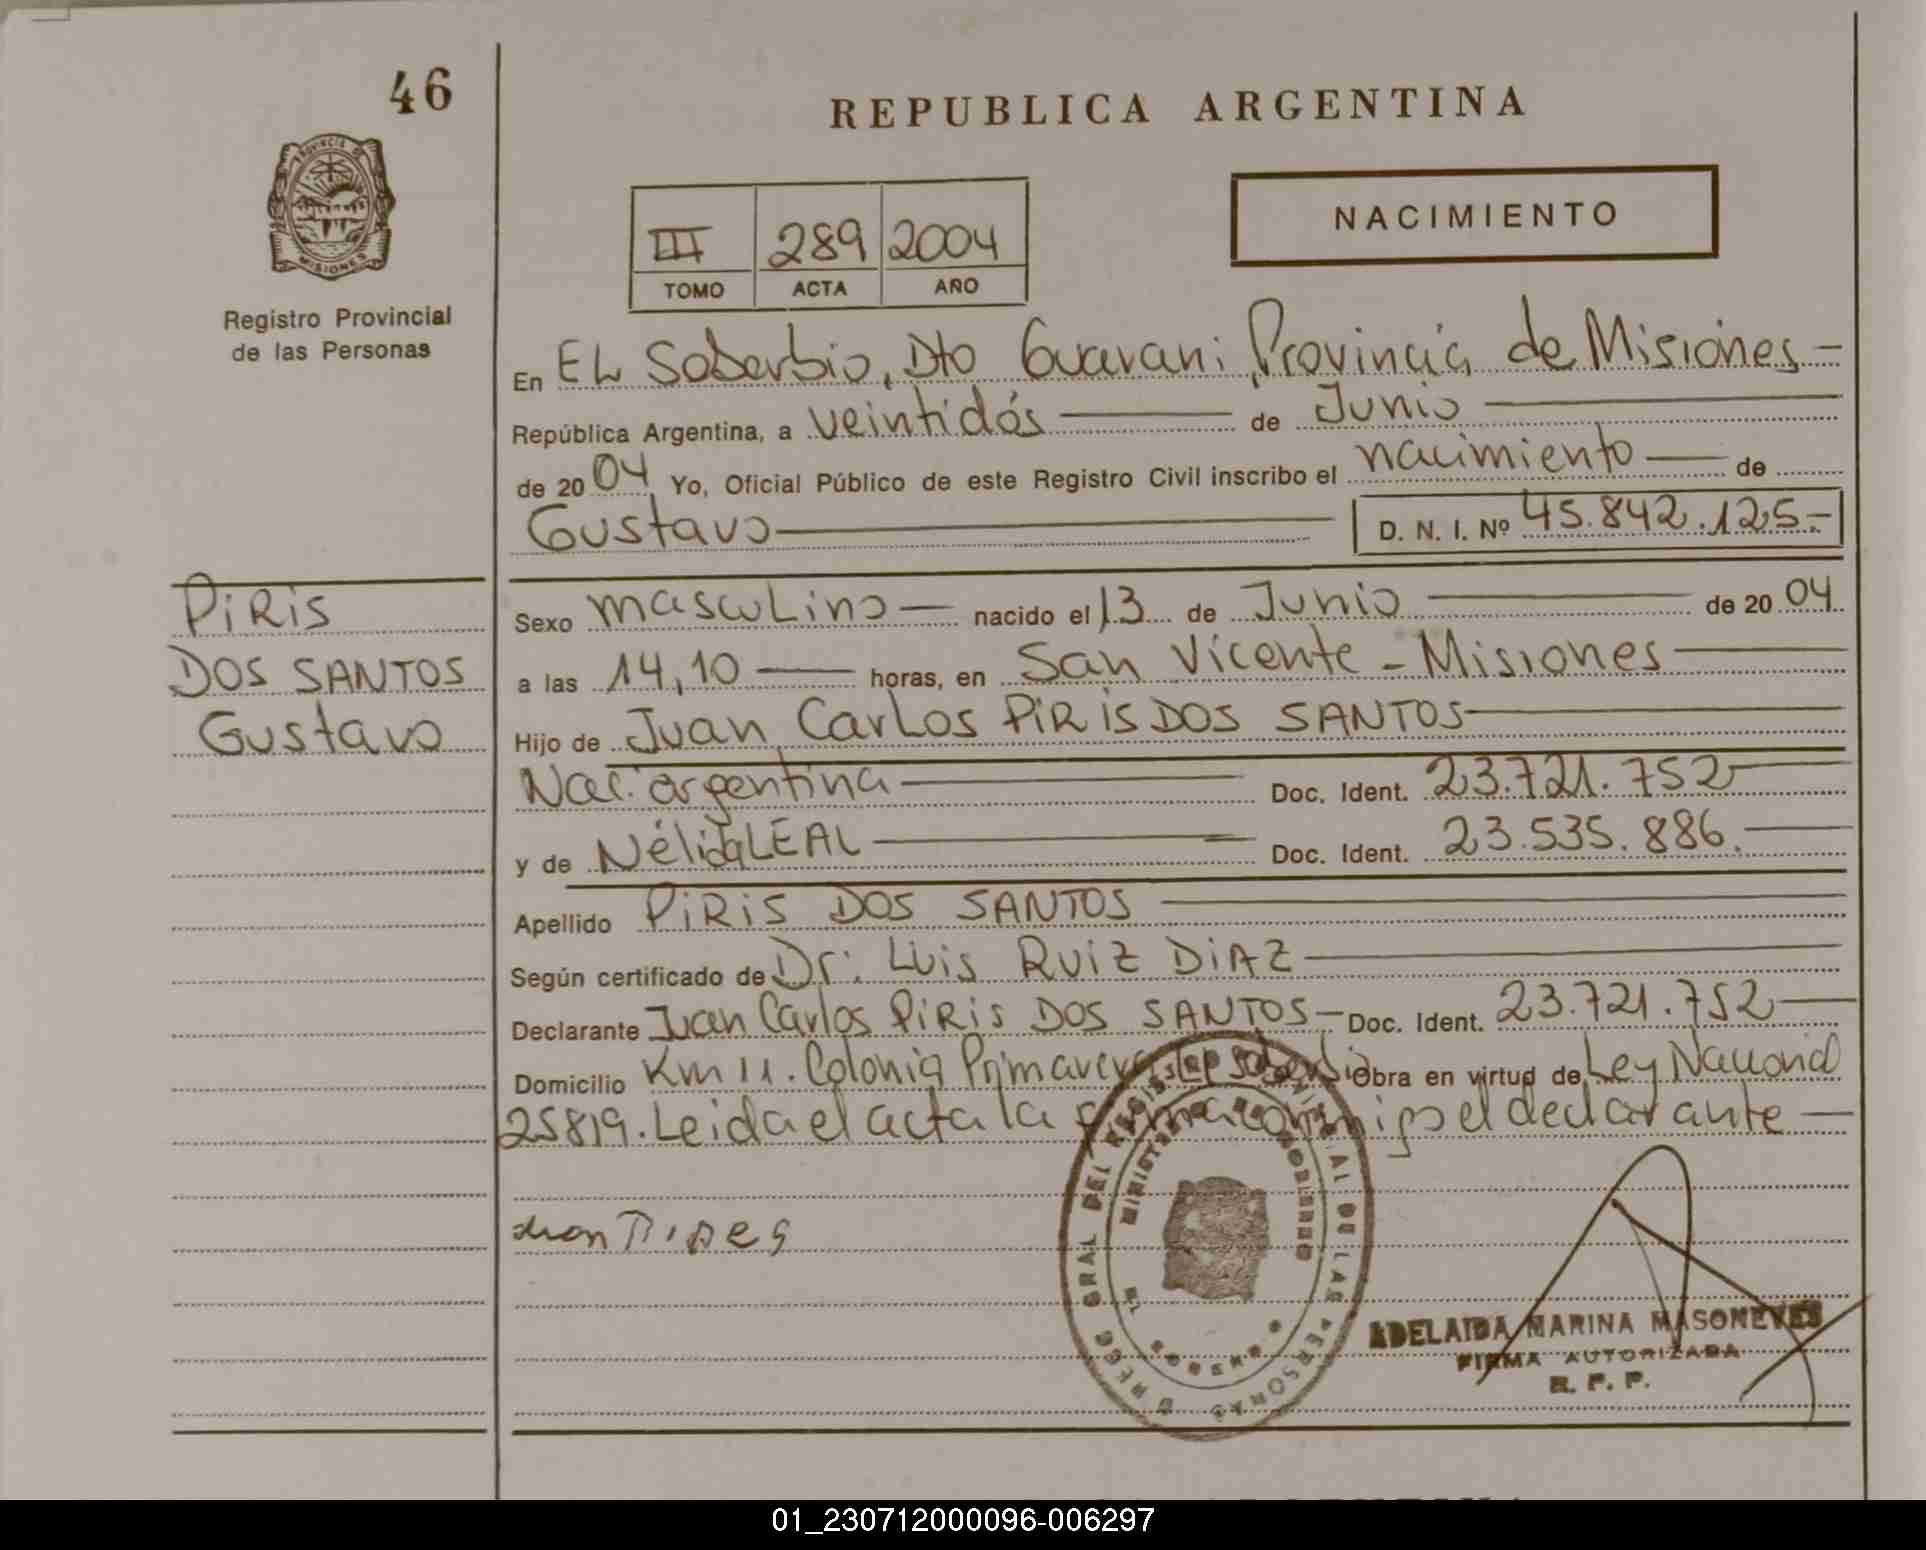 46
REPUBLICA ARGENTINA
PROVINCIA DE
MISIONES
Registro Provincial
de las Personas
NACIMIENTO
III 289 2004
TOMO ACTA AÑO
En EL Soberbio, Dto Guarani, Provincia de Misiones-
República Argentina, a veintidós de Junio
de 2004 Yo, Oficial Público de este Registro Civil inscribo el nacimiento de
Gustavo D. N. I. Nº 45.842.125.-
PiRis
DOS SANTOS
Gustavo
Sexo mascuLino nacido el 13 de Junio de 2004
a las 14,10 horas, en San Vicente - Misiones
Hijo de Juan CarLos PiRis DOS SANTOS
Nac. argentina Doc. Ident. 23.721.752
y de Nélida LEAL Doc. Ident. 23.535.886.
Apellido PiRis DOS SANTOS
Según certificado de Dr. Luis RUiZ DiAZ
Declarante Juan Carlos PiRis DOS SANTOS- Doc. Ident. 23.721.752
Domicilio Km 11. Colonia Primavera Soberbio Obra en virtud de Ley Nacional
25819. Leida el acta la firma conmigo el declarante
ADELAIDA MARINA MASONEVES
FIRMA AUTORIZADA
R. P. P.
01_230712000096-006297